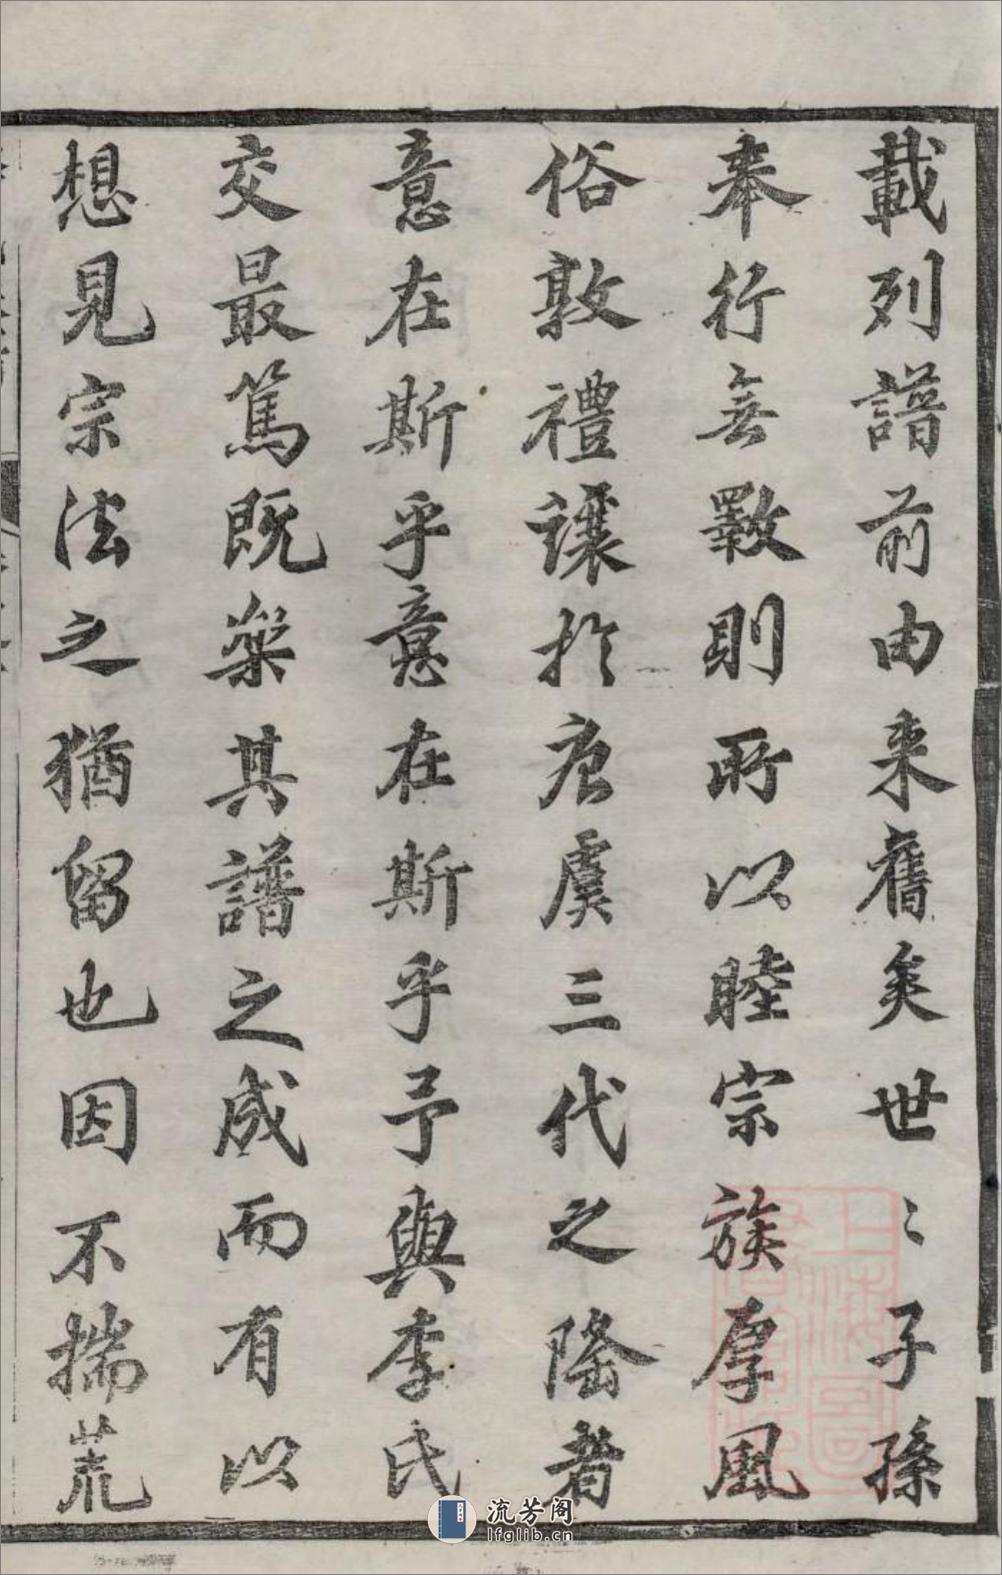 載列譜前由来舊矣世〻子孫
奉行無斁則所以睦宗族厚風
俗敦禮讓於唐虞三代之隆者
意在斯乎意在斯乎予與李氏
交最篤既樂其譜之成而有以
想見宗法之猶留也因不揣荒
流芳阁
lfglib.cn